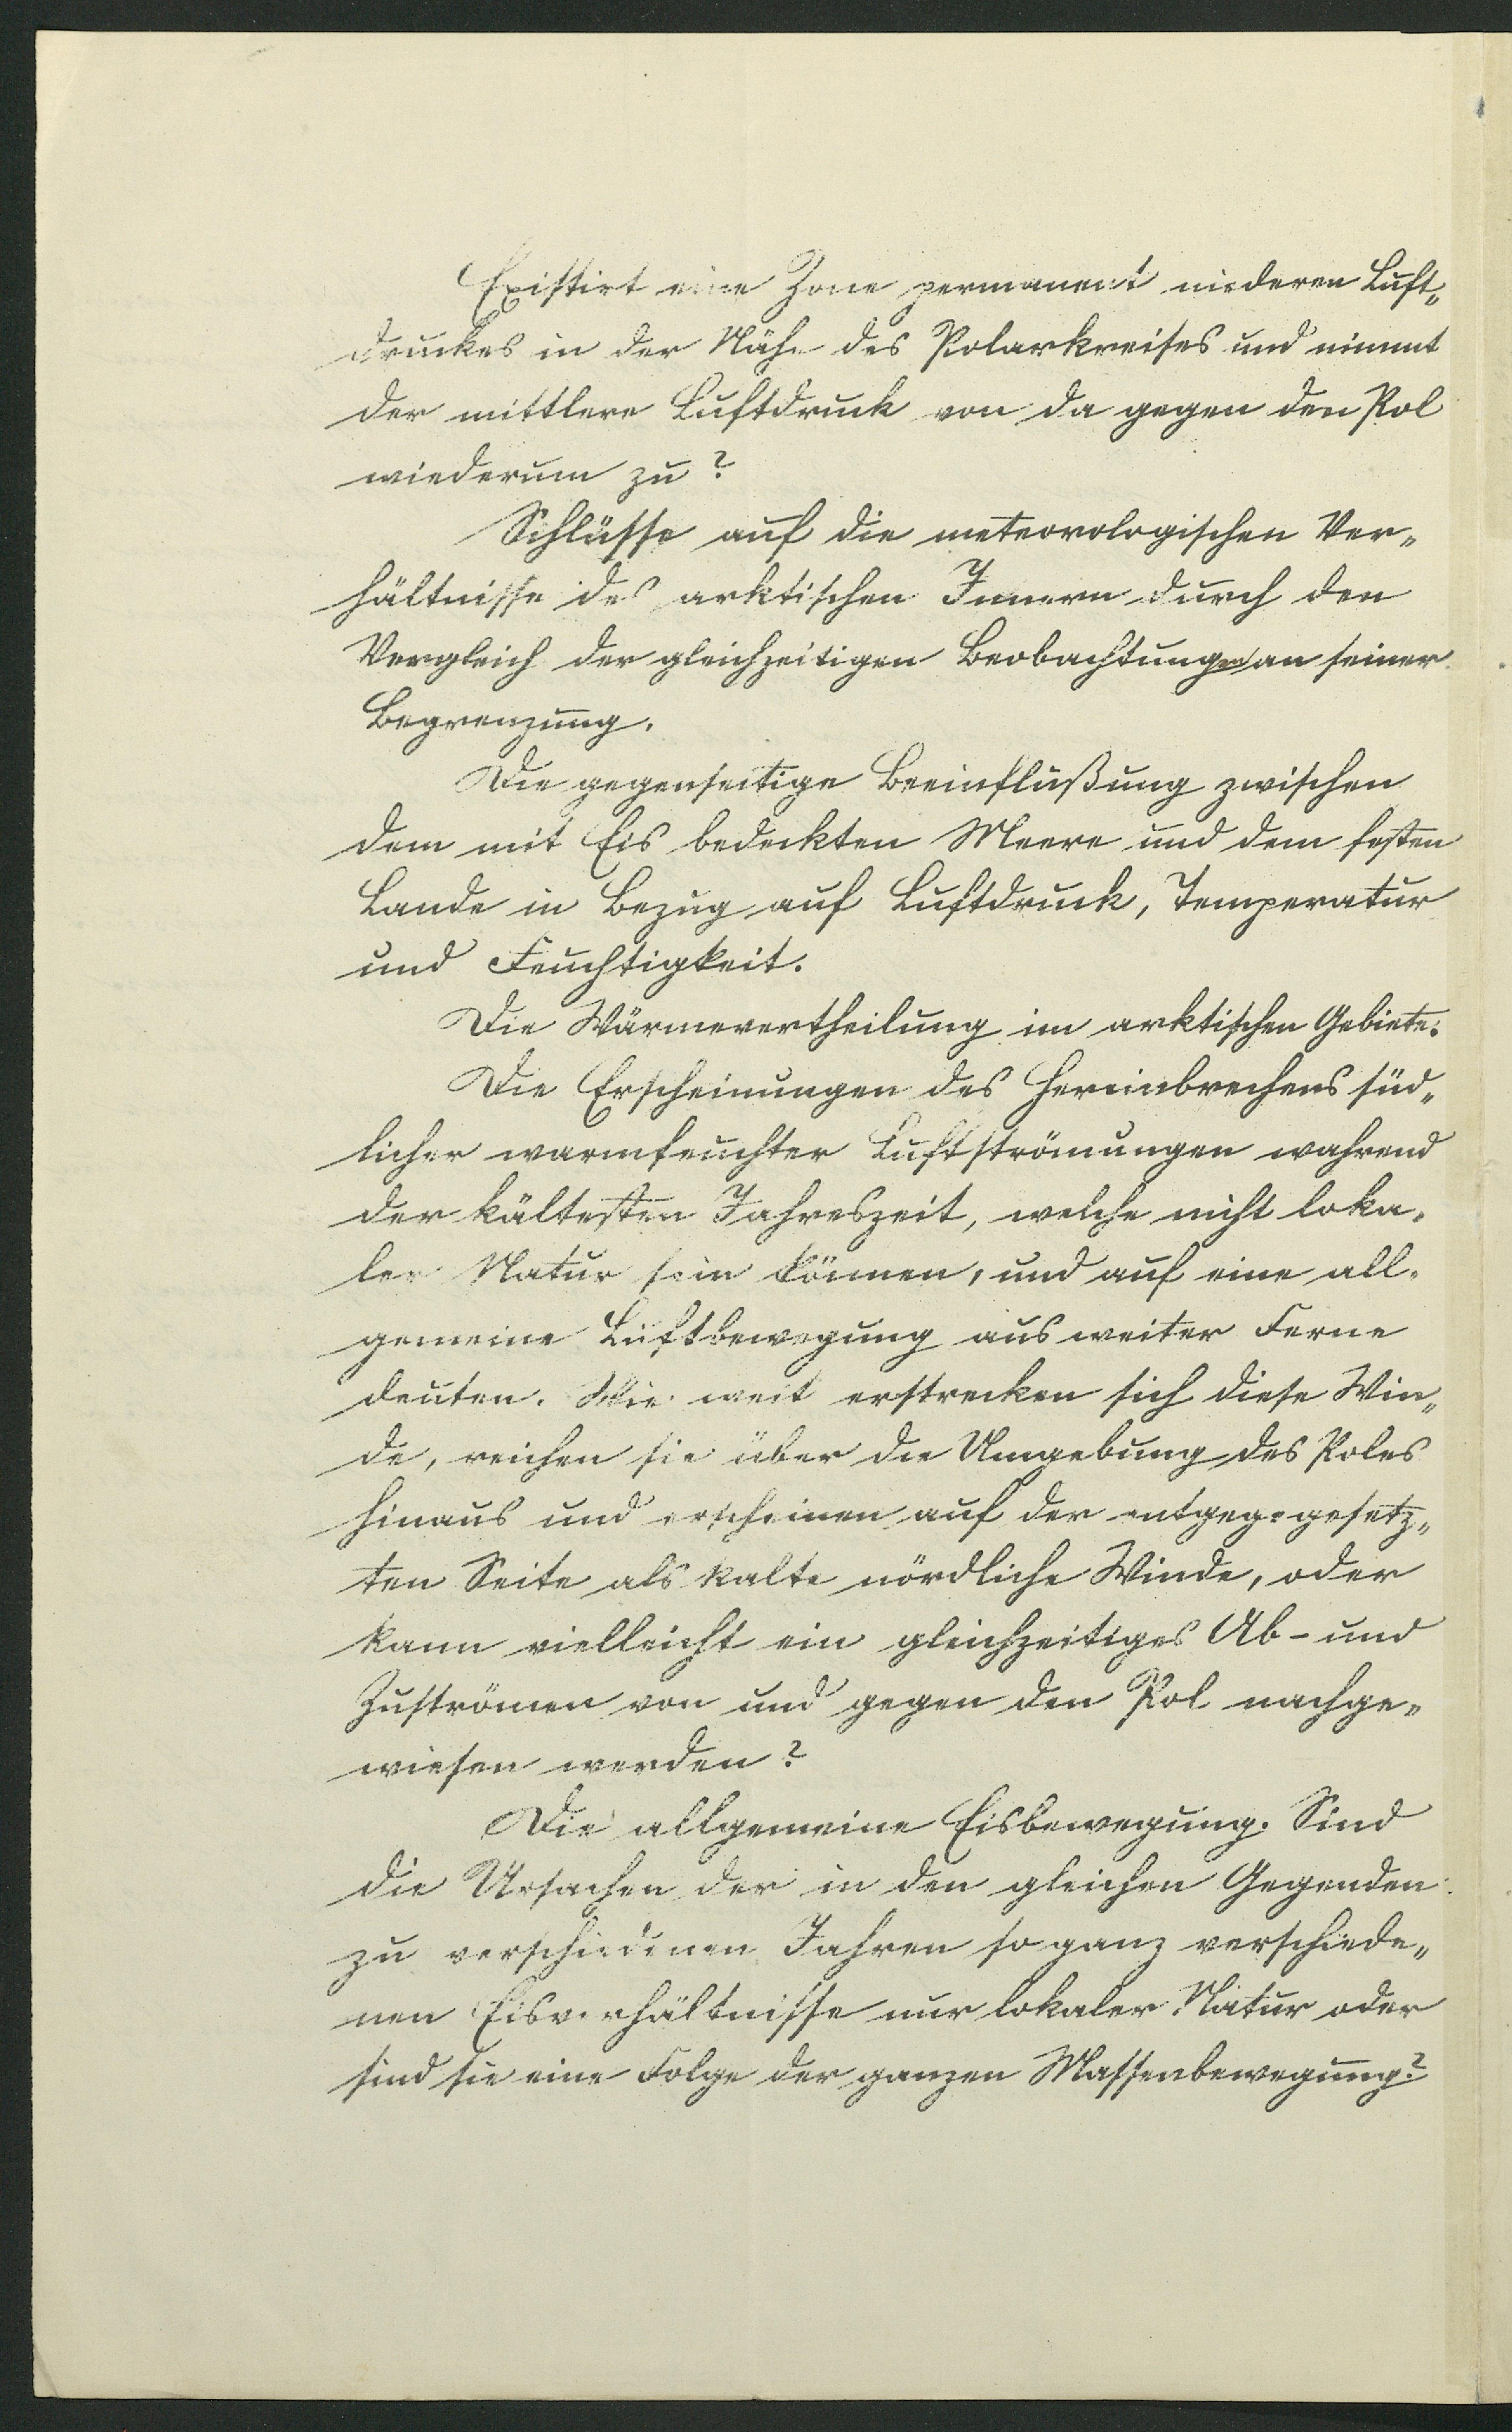 Existirt eine Zone permanent niederen Luft„
druckes in der Nähe des Polarkreises und nimmt
der mittlere Luftdruck von da gegen den Pol
wiederum zu?
Schlüsse auf die meteorologischen Ver„
hältnisse des arktischen Innern durch den
Vergleich der gleichzeitigen Beobachtungen an seiner
Begrenzung.
Die gegenseitige Beeinflußung zwischen
dem mit Eis bedeckten Meere und dem festen
Lande in Bezug auf Luftdruck, Temperatur
und Feuchtigkeit.
Die Wärmevertheilung im arktischen Gebiete.
Die Erscheinungen des Hereinbrechens süd„
licher warmfeuchter Luftströmungen wahrend
der kältesten Jahreszeit, welche nicht loka„
ler Natur sein können, und auf eine all„
gemeine Luftbewegung aus weiter Ferne
deuten. Wie weit erstrecken sich diese Win„
de, reichen sie über die Umgebung des Poles
hinaus und erscheinen auf der entgegegesetz„
ten Seite als kalte nördliche Winde, oder
kann vielleicht ein gleichzeitiges Ab- und
Zuströmen von und gegen den Pol nachge„
wiesen werden?
Die allgemeine Eisbewegung. Sind
die Ursachen der in den gleichen Gegenden
zu verschiedenen Jahren so ganz verschiede„
nen Eisverhältnisse nur lokaler Natur oder
sind sie eine Folge der ganzen Massenbewegung?